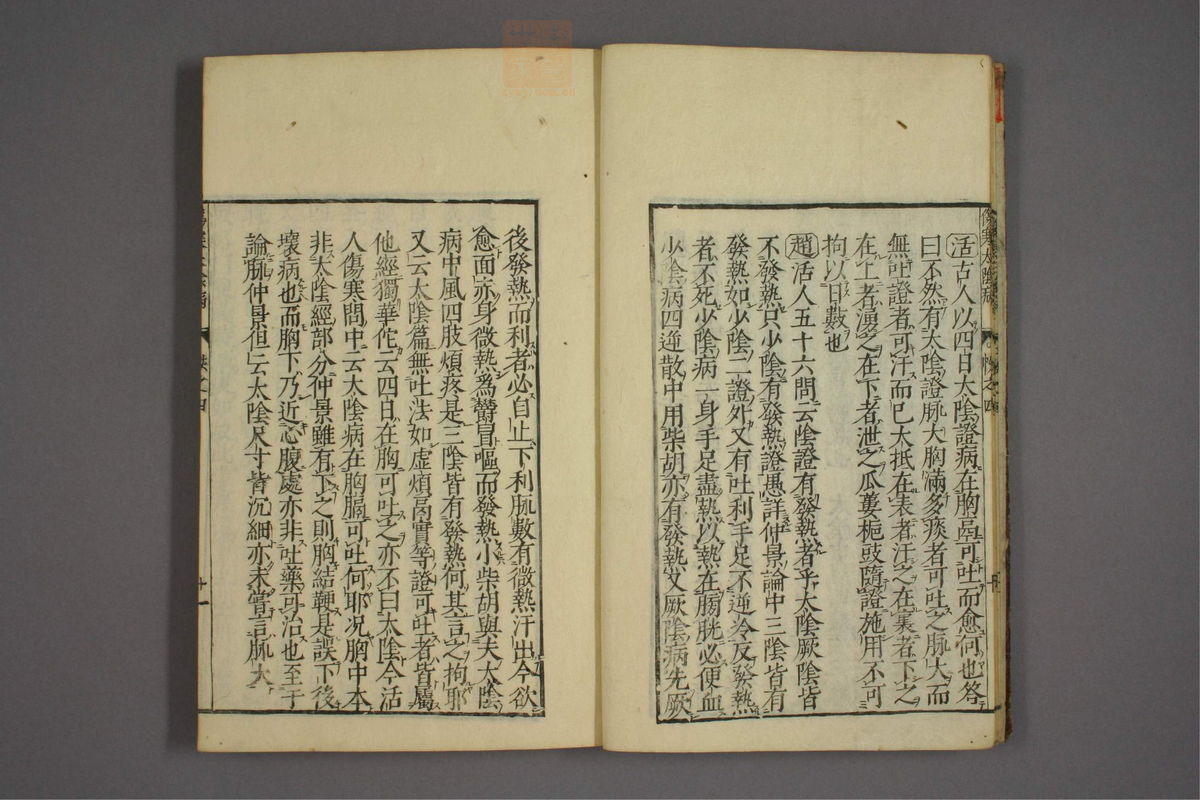 傷寒太陰病
卷之四
活古人以四日太陰證病在胸膈可吐而愈何也答
曰不然有太陰證脉大胸滿多痰者可吐之脉大而
無吐證者可汗而已大抵在表者汗之在裏者下之
在上者湧之在下者泄之瓜蔞梔豉隨證施用不可
拘以日數也
趙活人五十六問云陰證有發熱者乎太陰厥陰皆
不發熱只少陰有發熱證愚詳仲景論中三陰皆有
發熱如少陰二證外又有吐利手足不逆冷反發熱
者不死少陰病一身手足盡熱以熱在膀胱必便血
少陰病四逆散中用柴胡亦有發熱又厥陰病先厥
後發熱而利者必自止下利脉數有微熱汗出今欲
愈面亦身微熱為欝冒嘔而發熱小柴胡與夫太陰
病中風四肢煩疼是三陰皆有發熱何其言之拘耶
又云太陰篇無吐法如虛煩膈實等證可吐者皆屬
他經獨華佗云四日在胸可吐之亦不曰太陰今活
人傷寒問中云太陰病在胸膈可吐何耶况胸中本
非太陰經部分仲景雖有下之則胸結鞕是誤下後
壞病也而胸下乃近心腹處亦非吐藥可治也至于
論脉仲景但云太陰尺寸皆沉細亦未嘗言脉大
十一